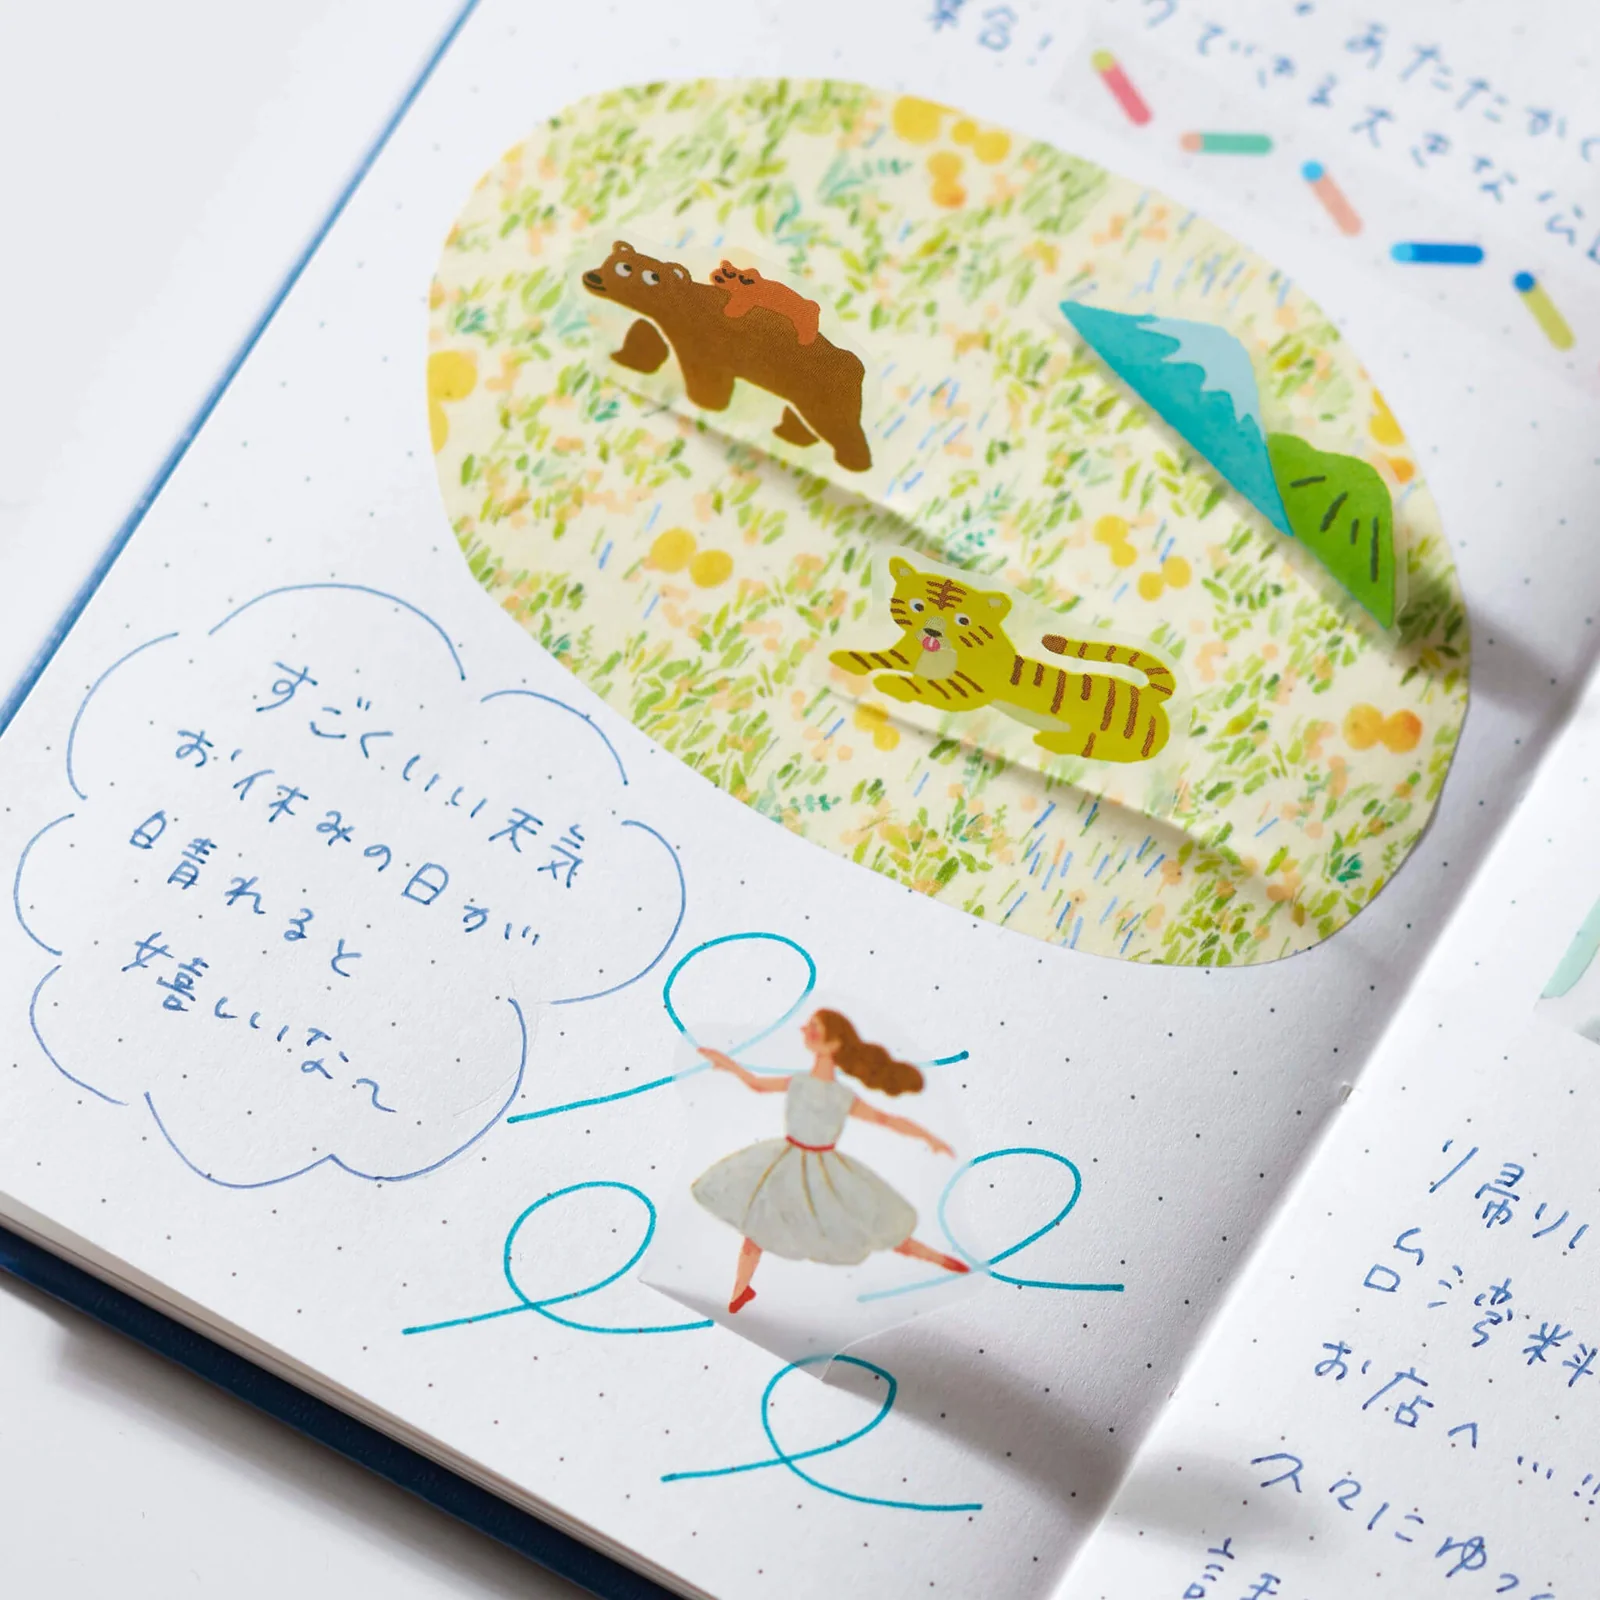 あたたかく
できる大きな公
集合！
すごくいい天気
お休みの日が
晴れると
嬉しいな〜
り帰り
台湾料
お店へ…!!
久々にゆっ